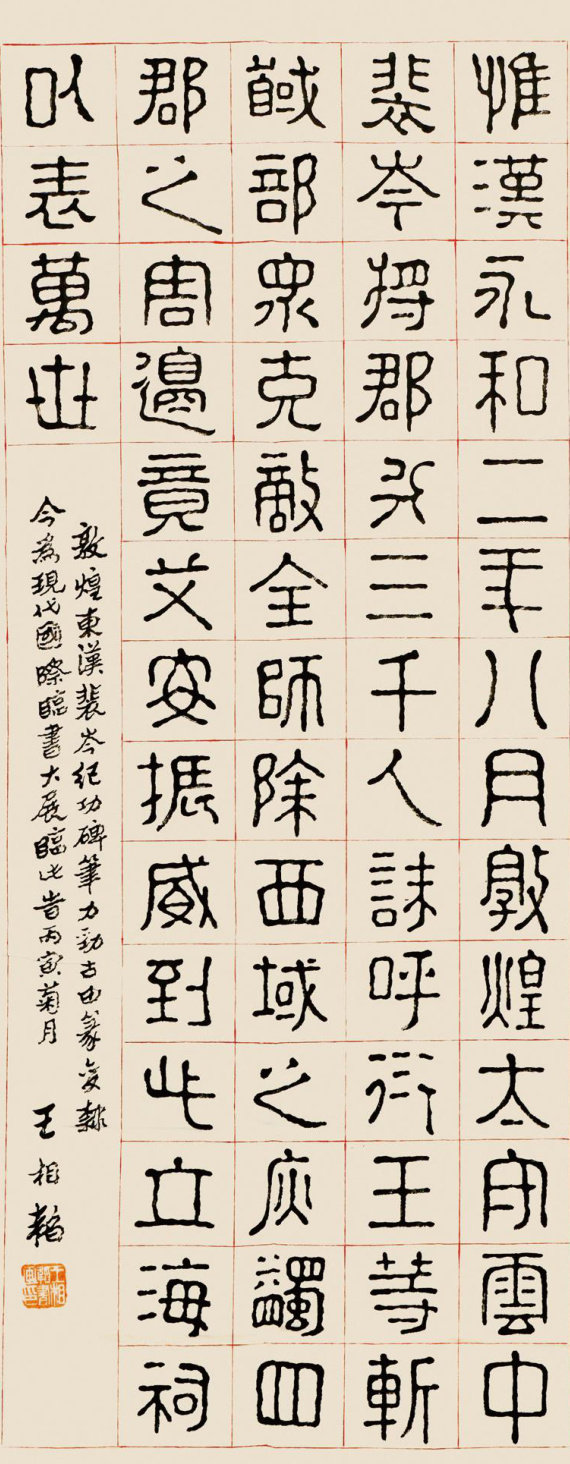 惟漢永和二年八月敦煌太守雲中
裴岑將郡兵三千人誅呼衍王等斬
馘部眾克敵全師除西域之疢蠲四
郡之害邊竟艾安振威到此立海祠
以表萬世
敦煌東漢裴岑紀功碑筆力勁古由篆變隸
今為現代國際臨書大展臨此旹丙寅菊月 王相